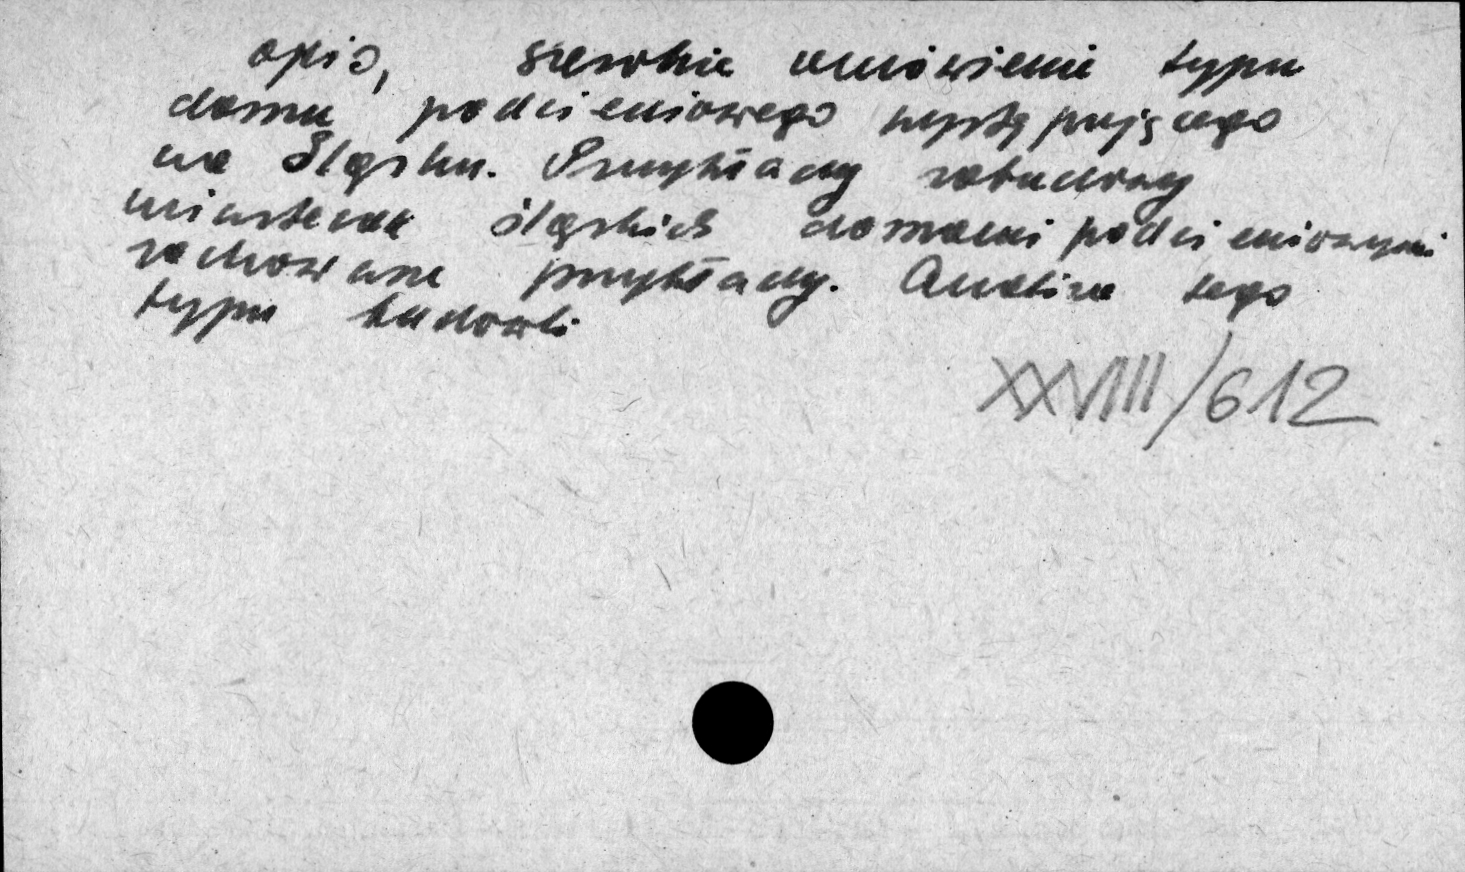 opis, szerokie omówienie typu
domu podcieniowego występującego
na Śląsku. Przykłady zabudowy
miasteczek śląskich domami podcieniowymi
zachowane przykłady. Analiza tego
typu budowli
XXVIII/612